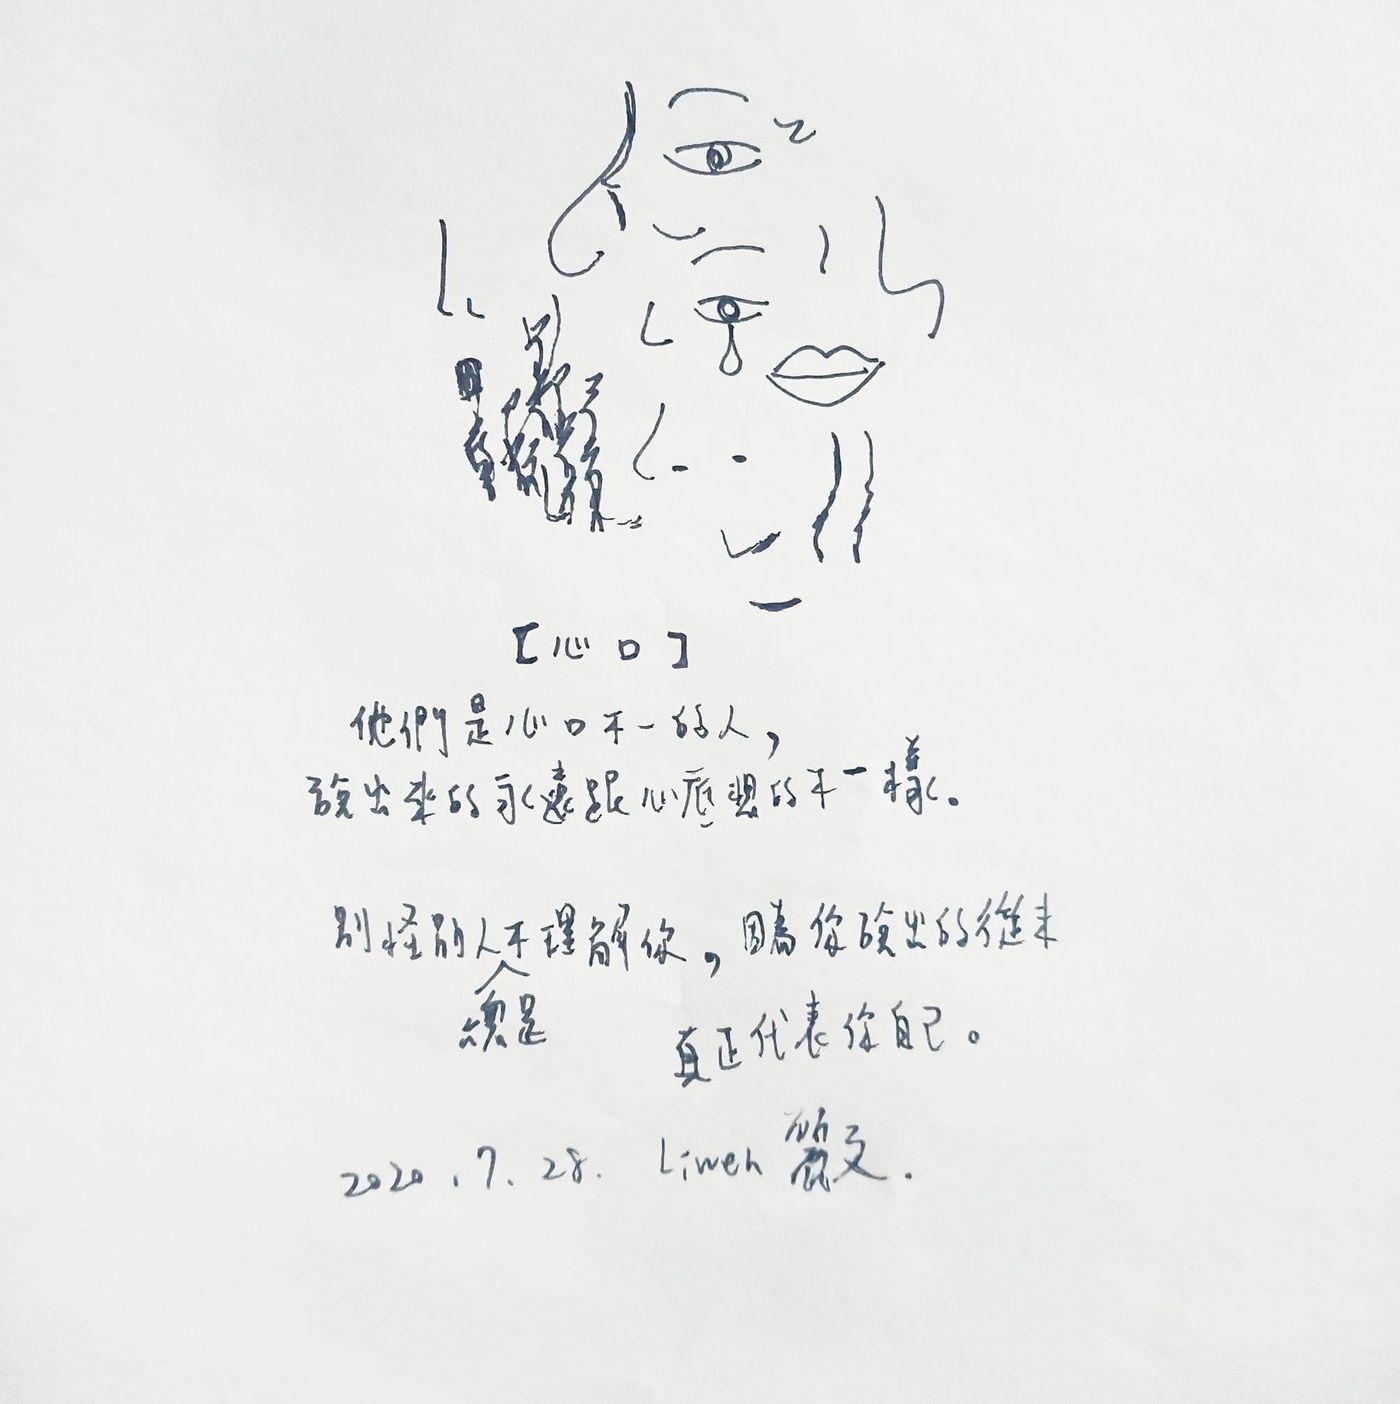 [心口]
他們是心口不一的人，
說出來的永遠跟心底想的不一樣。
別怪別人不理解你，因為你說出的從未
總是
真正代表你自己。
2020.7.28. Liwen 麗文.